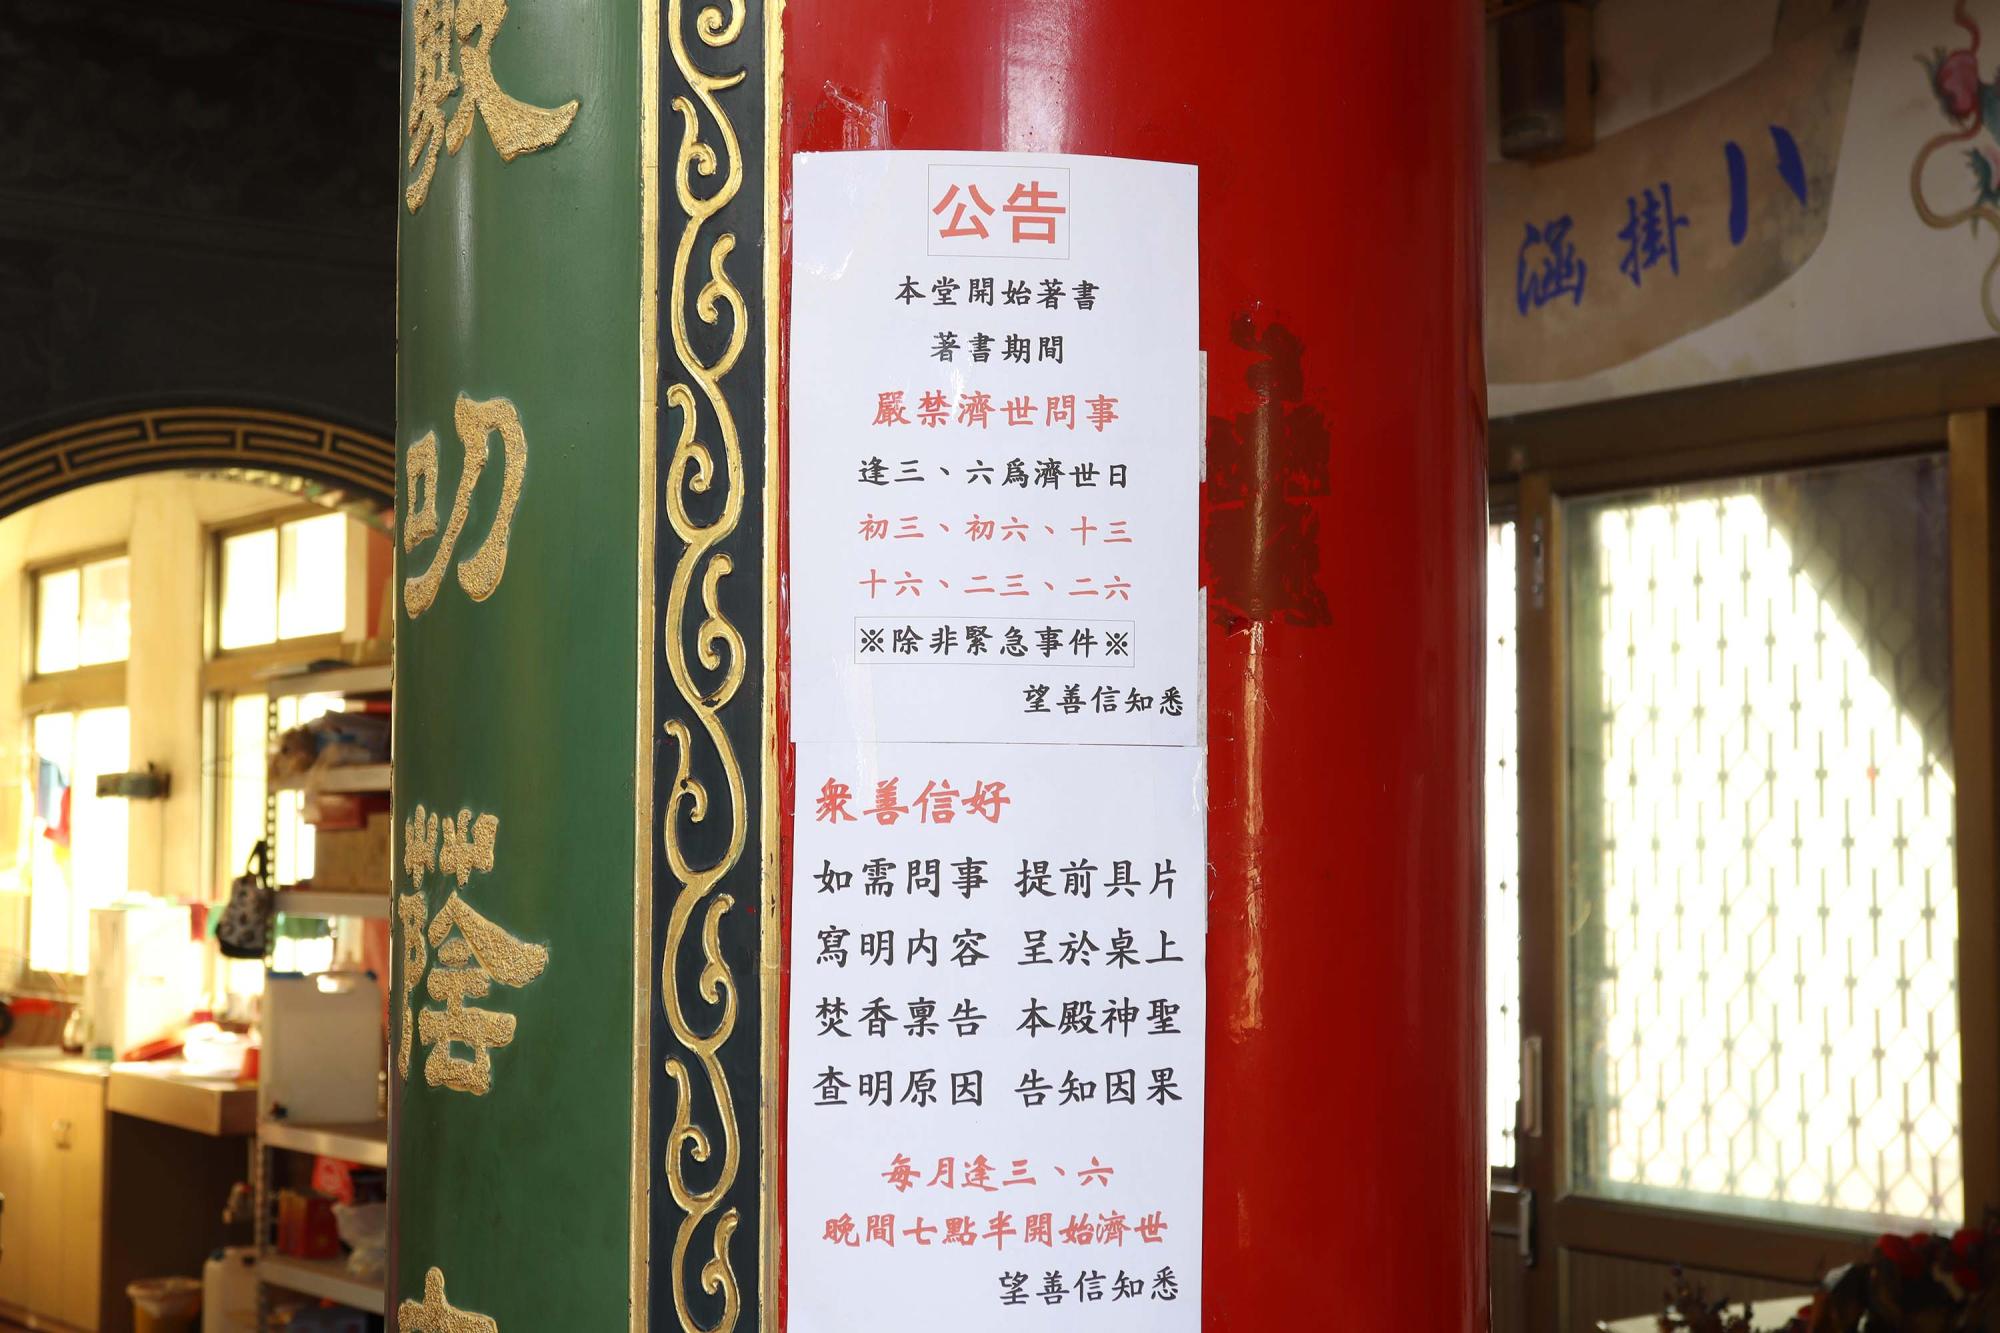 公告
本堂開始著書
著書期間
嚴禁濟世問事
逢三、六爲濟世日
初三、初六、十三
十六、二三、二六
※除非緊急事件※
望善信知悉
衆善信好
如需問事 提前具片
寫明内容 呈於桌上
焚香稟告 本殿神聖
查明原因 告知因果
每月逢三、六
晚間七點半開始濟世
望善信知悉
叨
蔭
涵掛八